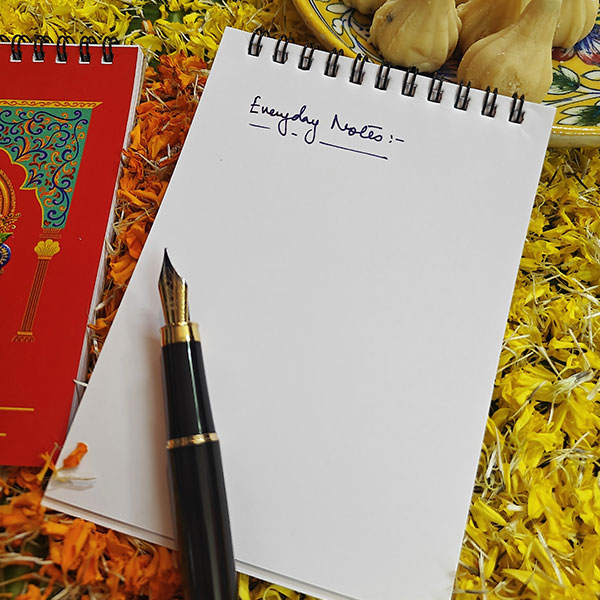 Everyday Notes :-